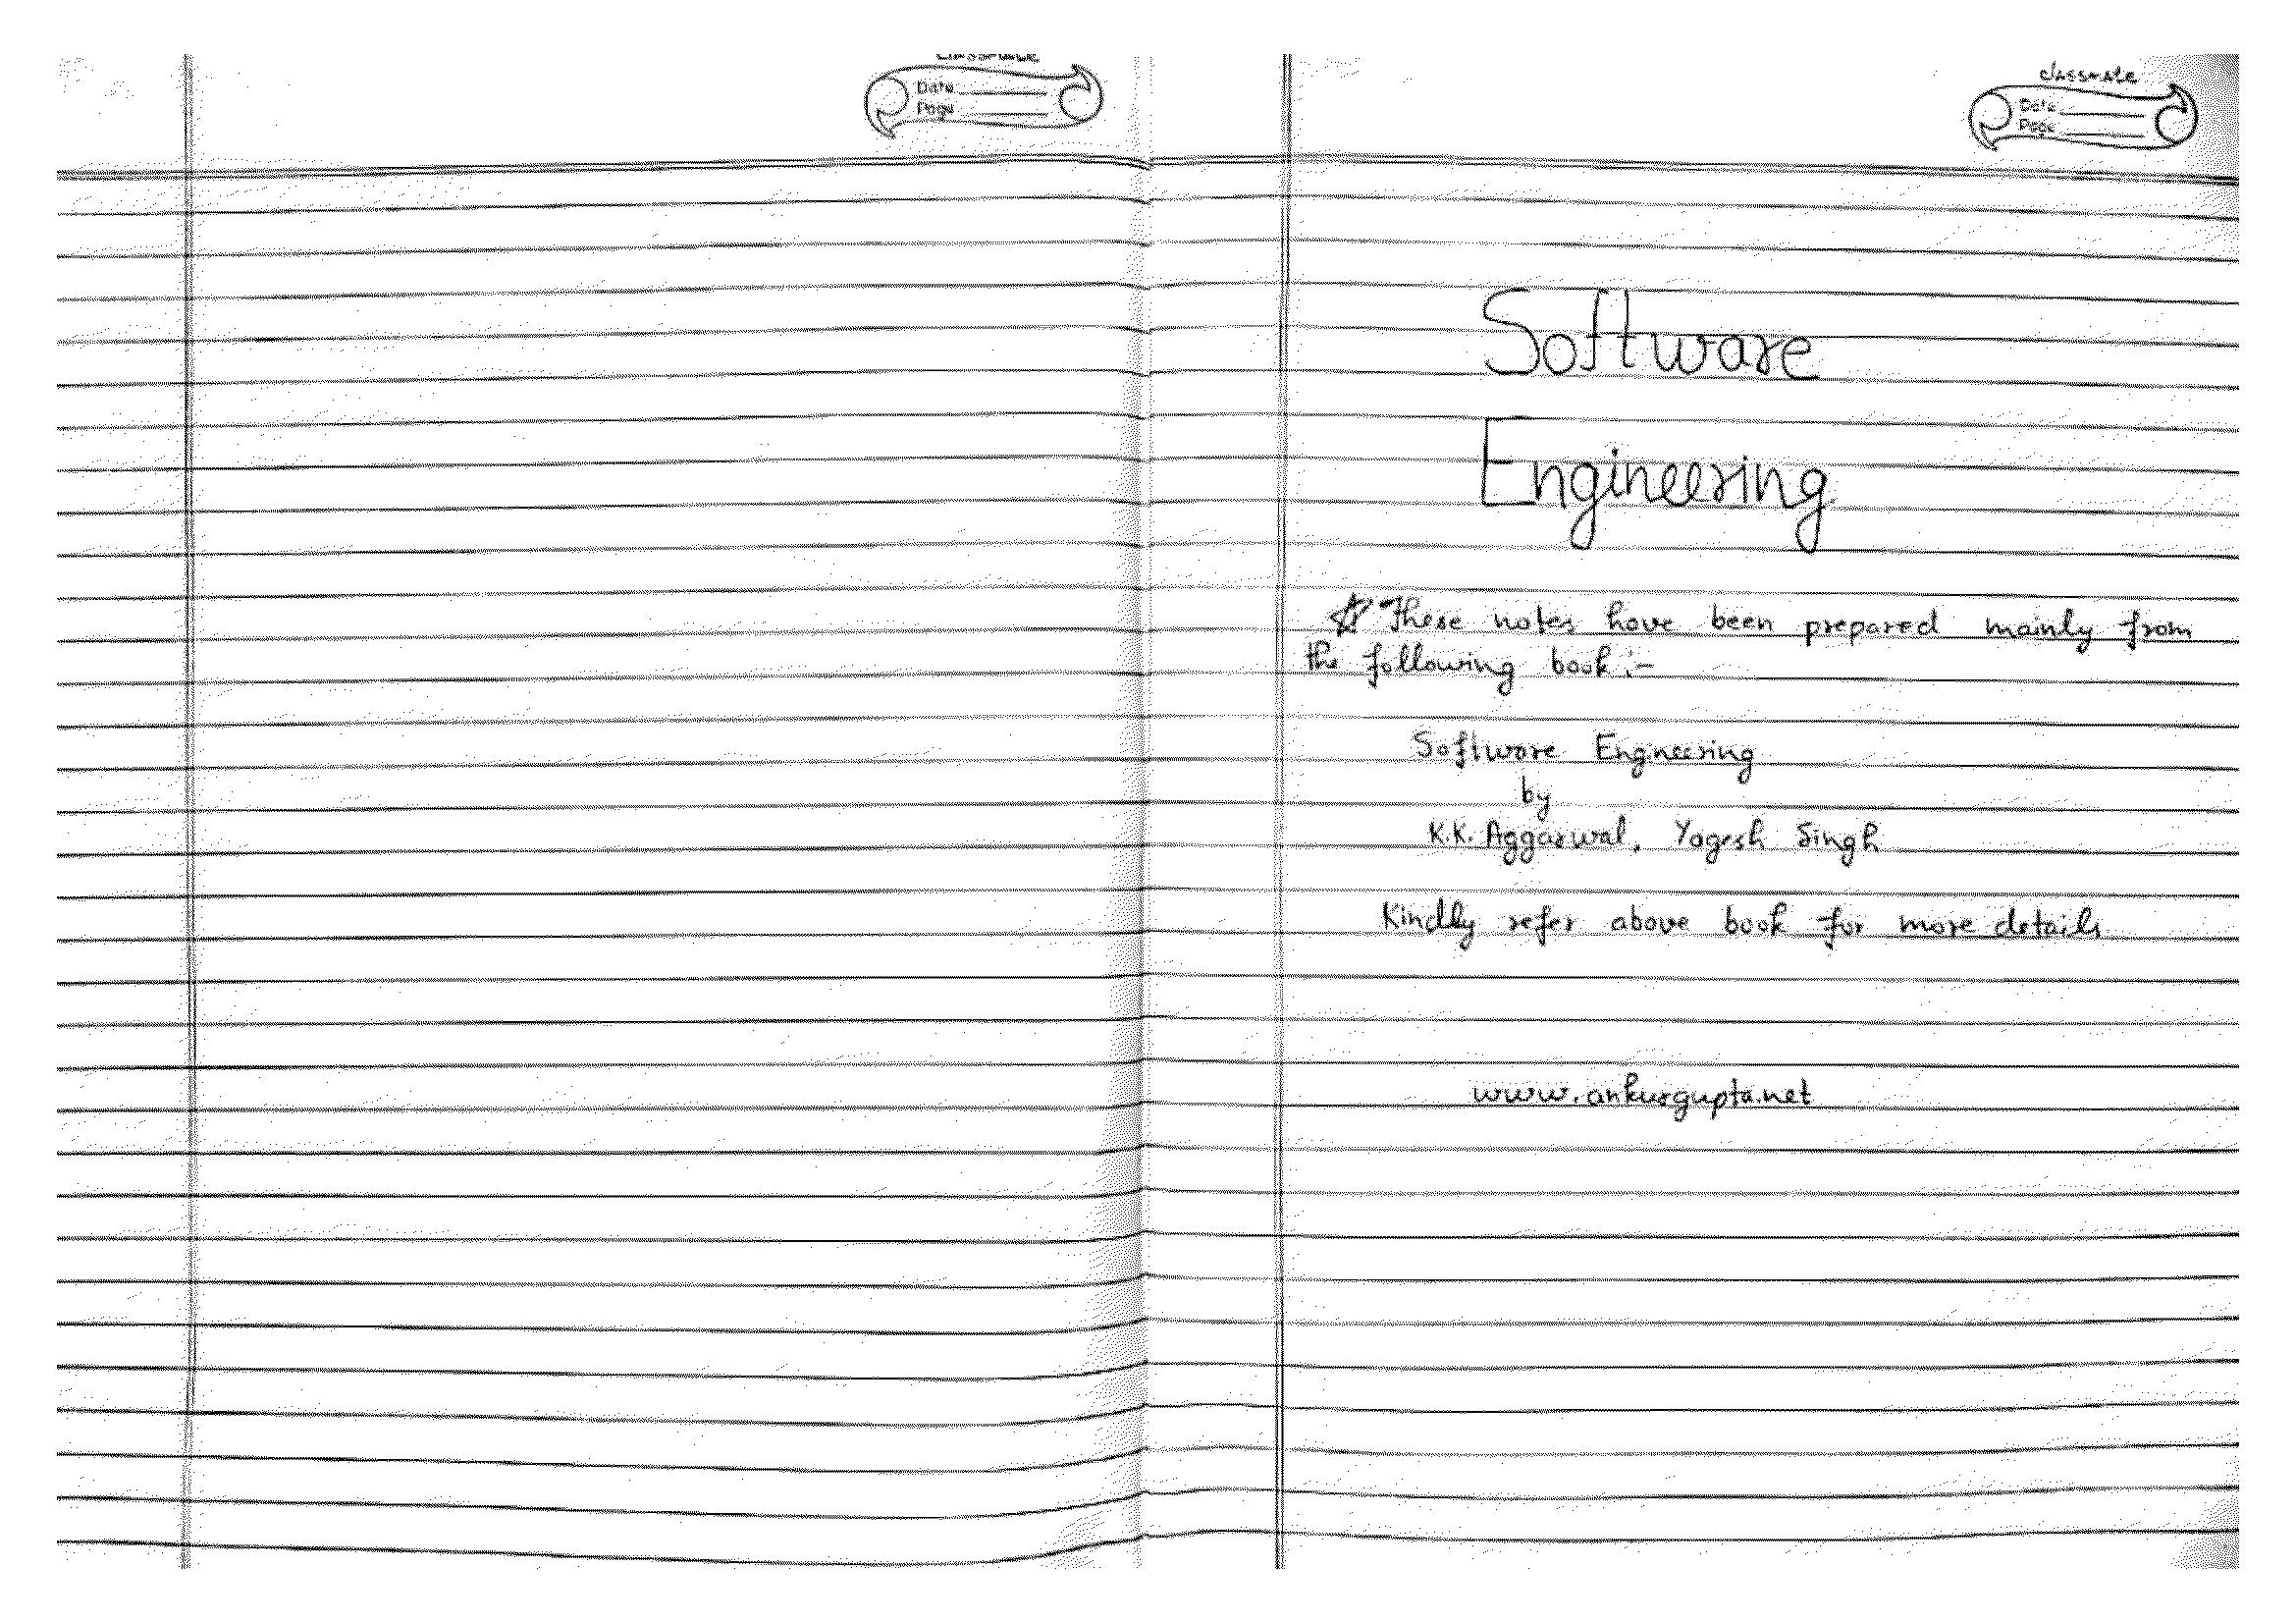 classmate
Date
Page
classmate
Date
Page
Software
Engineering
☆ These notes have been prepared mainly from
the following book :-
Software Engineering
by
K.K. Aggarwal, Yogesh Singh
Kindly refer above book for more details
www.ankurgupta.net